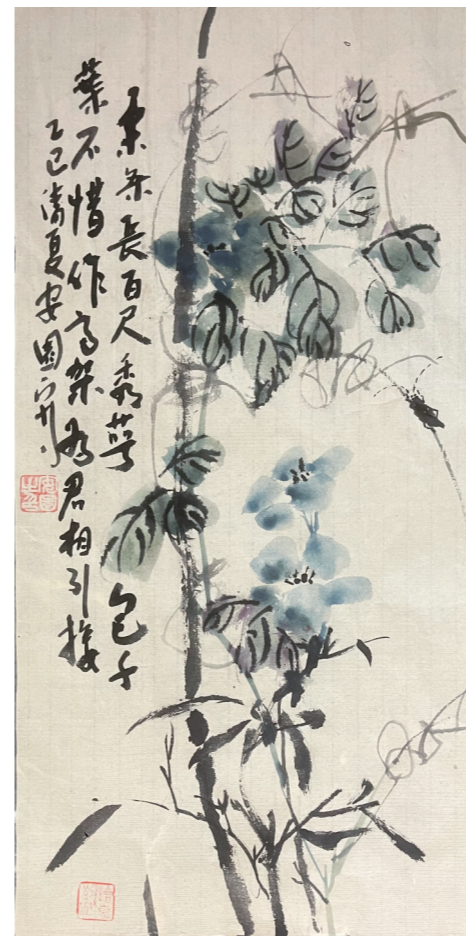 柔条長百尺秀萼包千
葉不惜作高架為君相引接
乙巳清夏安國寫